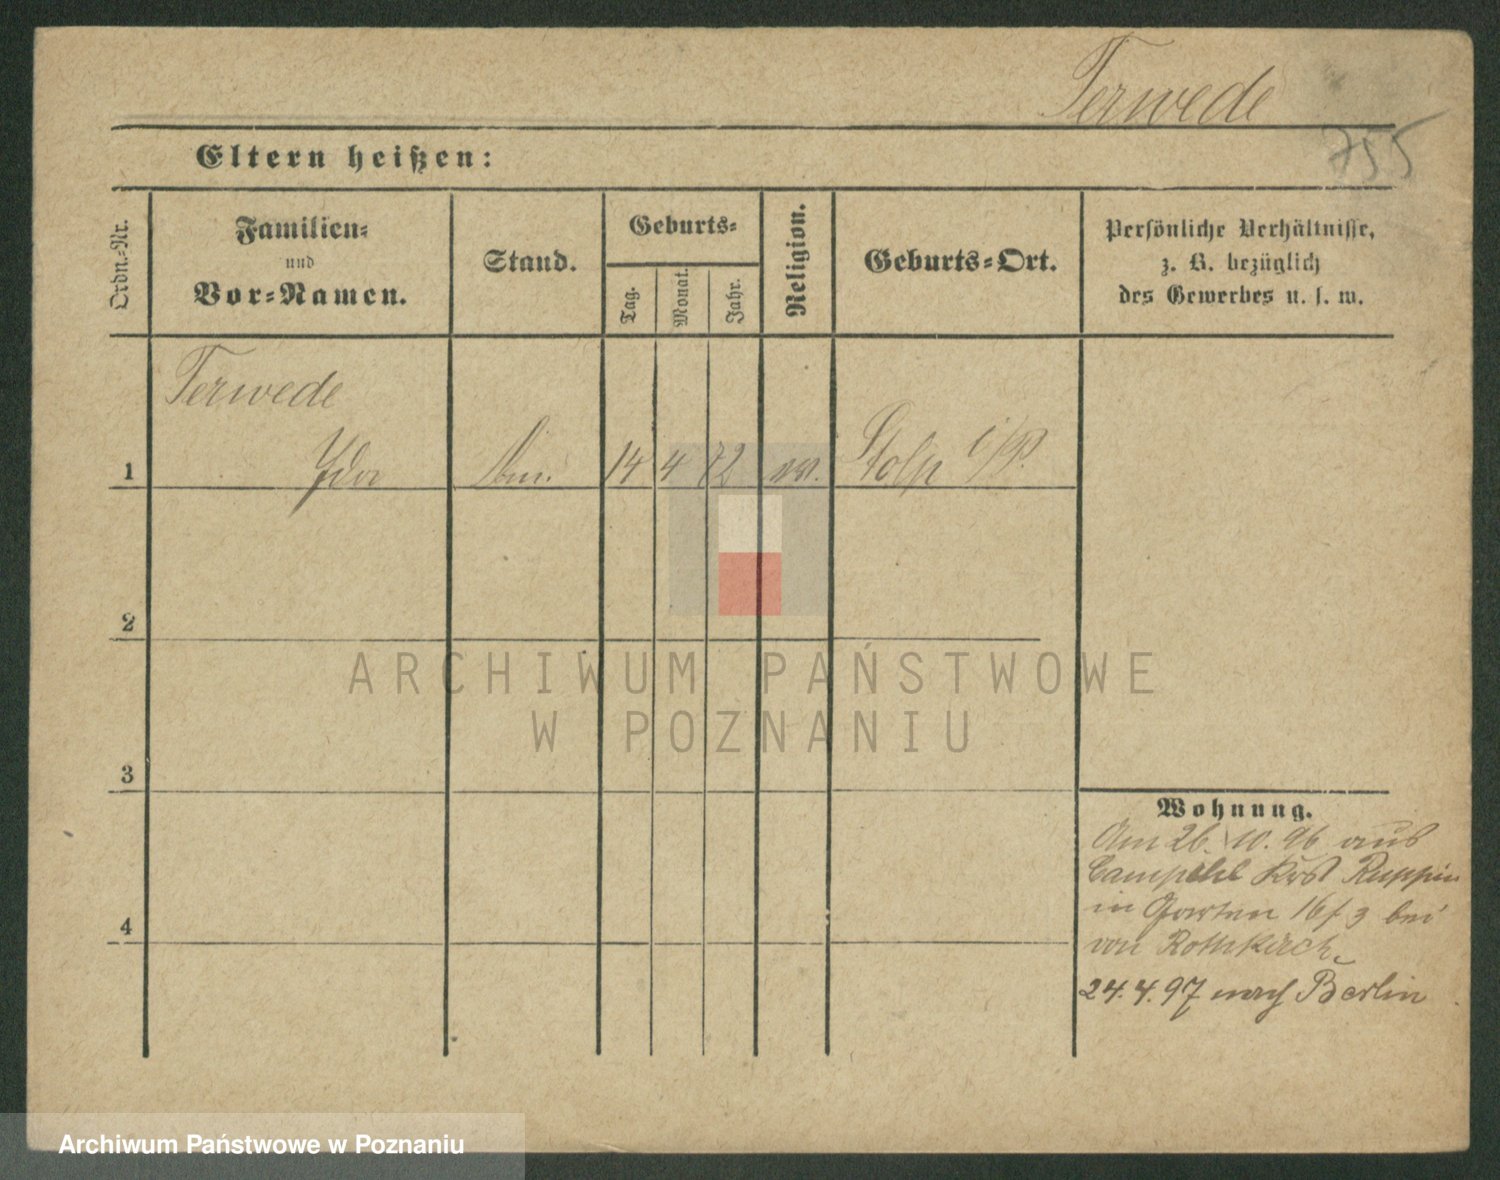 Terwede
755
Eltern heißen:
Ordn.-Nr.
Familien-
und
Vor-Namen.
Stand.
Geburts-
Tag.
Monat.
Jahr.
Religion.
Geburts-Ort.
Persönliche Verhältnisse,
z. B. bezüglich
des Gewerbes u. s. w.
Terwede
1 Ida 14 4 72 ev. Stolp i/P.
2
ARCHIWUM PAŃSTWOWE
W POZNANIU
3
Wohnung.
Am 26. 10. 96 aus
Campehl Krs Ruppin
in Garten 16 f 3 bei
von Rothkirch.
4
24. 4. 97 nach Berlin
Archiwum Państwowe w Poznaniu